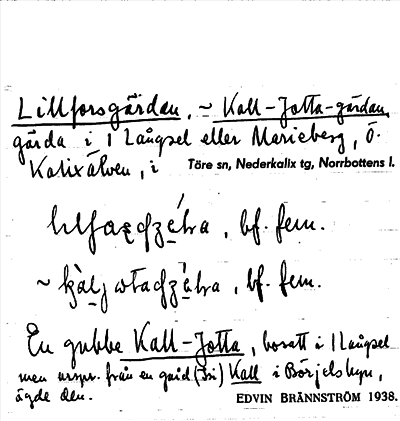 Lillforsgärdan, ~ Kall-Jotta-gärdan,
gärda i 1 Långsel eller Marieberg, ö.
Kalixälven, i Töre sn, Nederkalix tg, Norrbottens l.
bf. fem.
~ , bf. fem.
En gubbe Kall-Jotta, bosatt i 1 Långsel
men urspr. från en gård (3si) Kall i Börjelsbyn,
ägde den. EDVIN BRÄNNSTRÖM 1938.